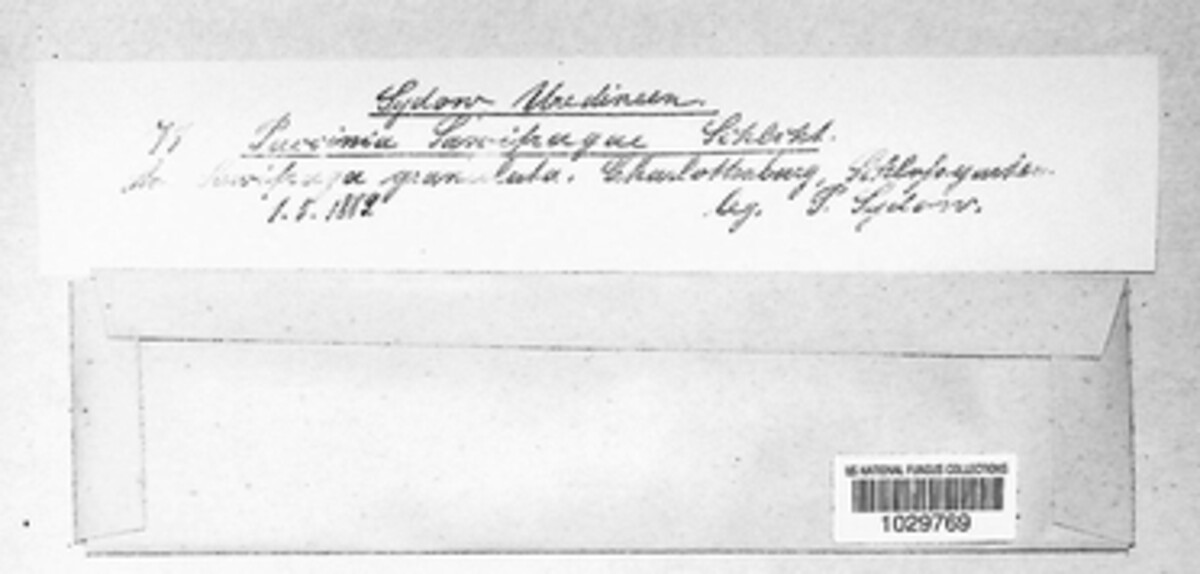 Sydow Uredineen.
Puccinia Saxifragae Schlcht.
Saxifraga granulata. Charlottenburg, Schlossgarten.
1.5.1882 leg. P. Sydow.
US NATIONAL FUNGUS COLLECTIONS
1029769